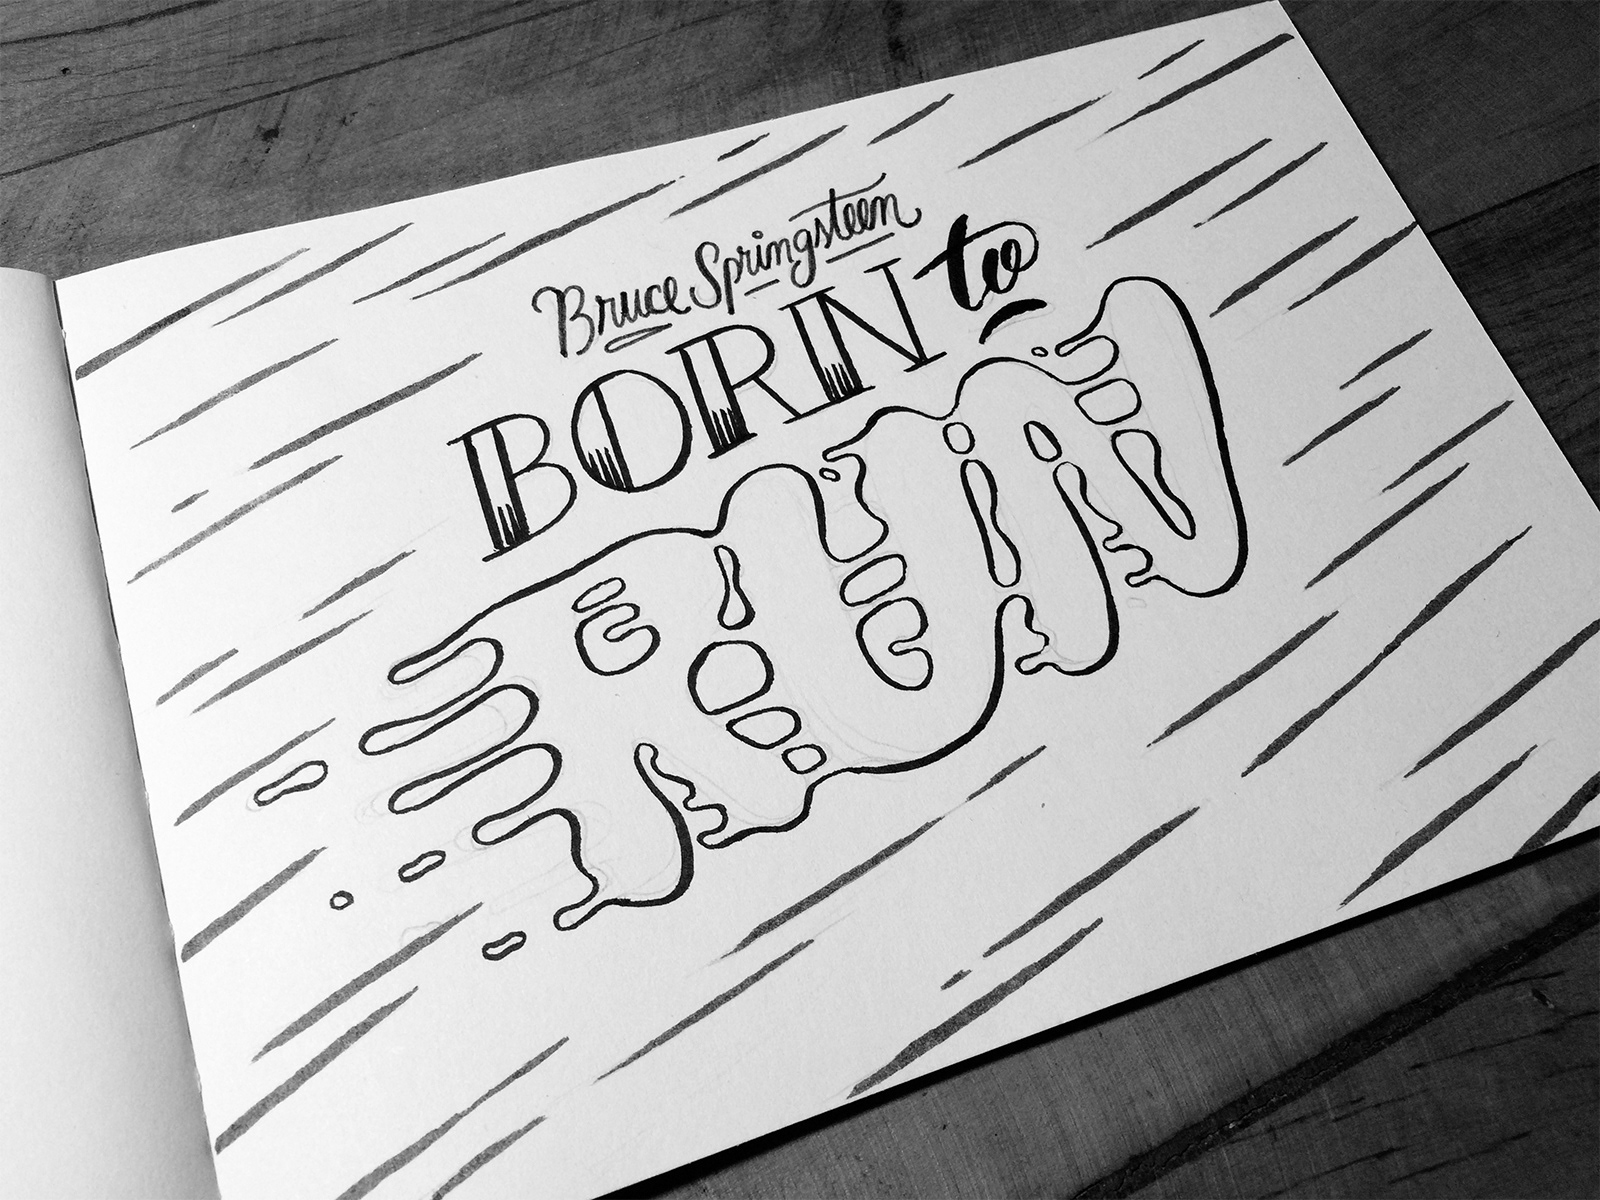 Bruce Springsteen
BORN to
RUN